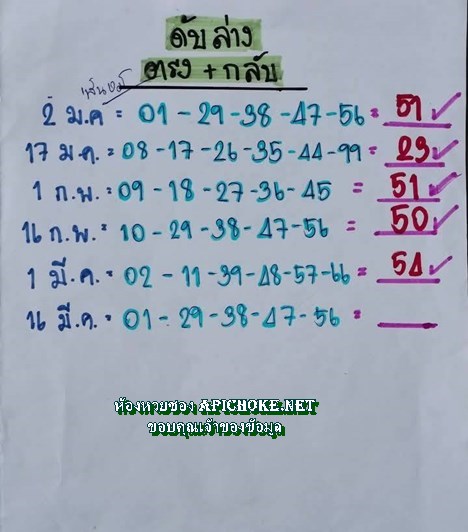 ดับล่าง
ตรง + กลับ
2 ม.ค = 01 - 29 - 38 - 47 - 56 = 51 ✓
17 ม.ค. = 08 - 17 - 26 - 35 - 44 - 99 = 23 ✓
1 ก.พ. = 09 - 18 - 27 - 36 - 45 = 51 ✓
16 ก.พ. = 10 - 29 - 38 - 47 - 56 = 50 ✓
1 มี.ค. = 02 - 11 - 39 - 48 - 57 - 66 = 54 ✓
16 มี.ค. = 01 - 29 - 38 - 47 - 56 =
ห้องหวยซอง APICHOKE.NET
ขอบคุณเจ้าของข้อมูล